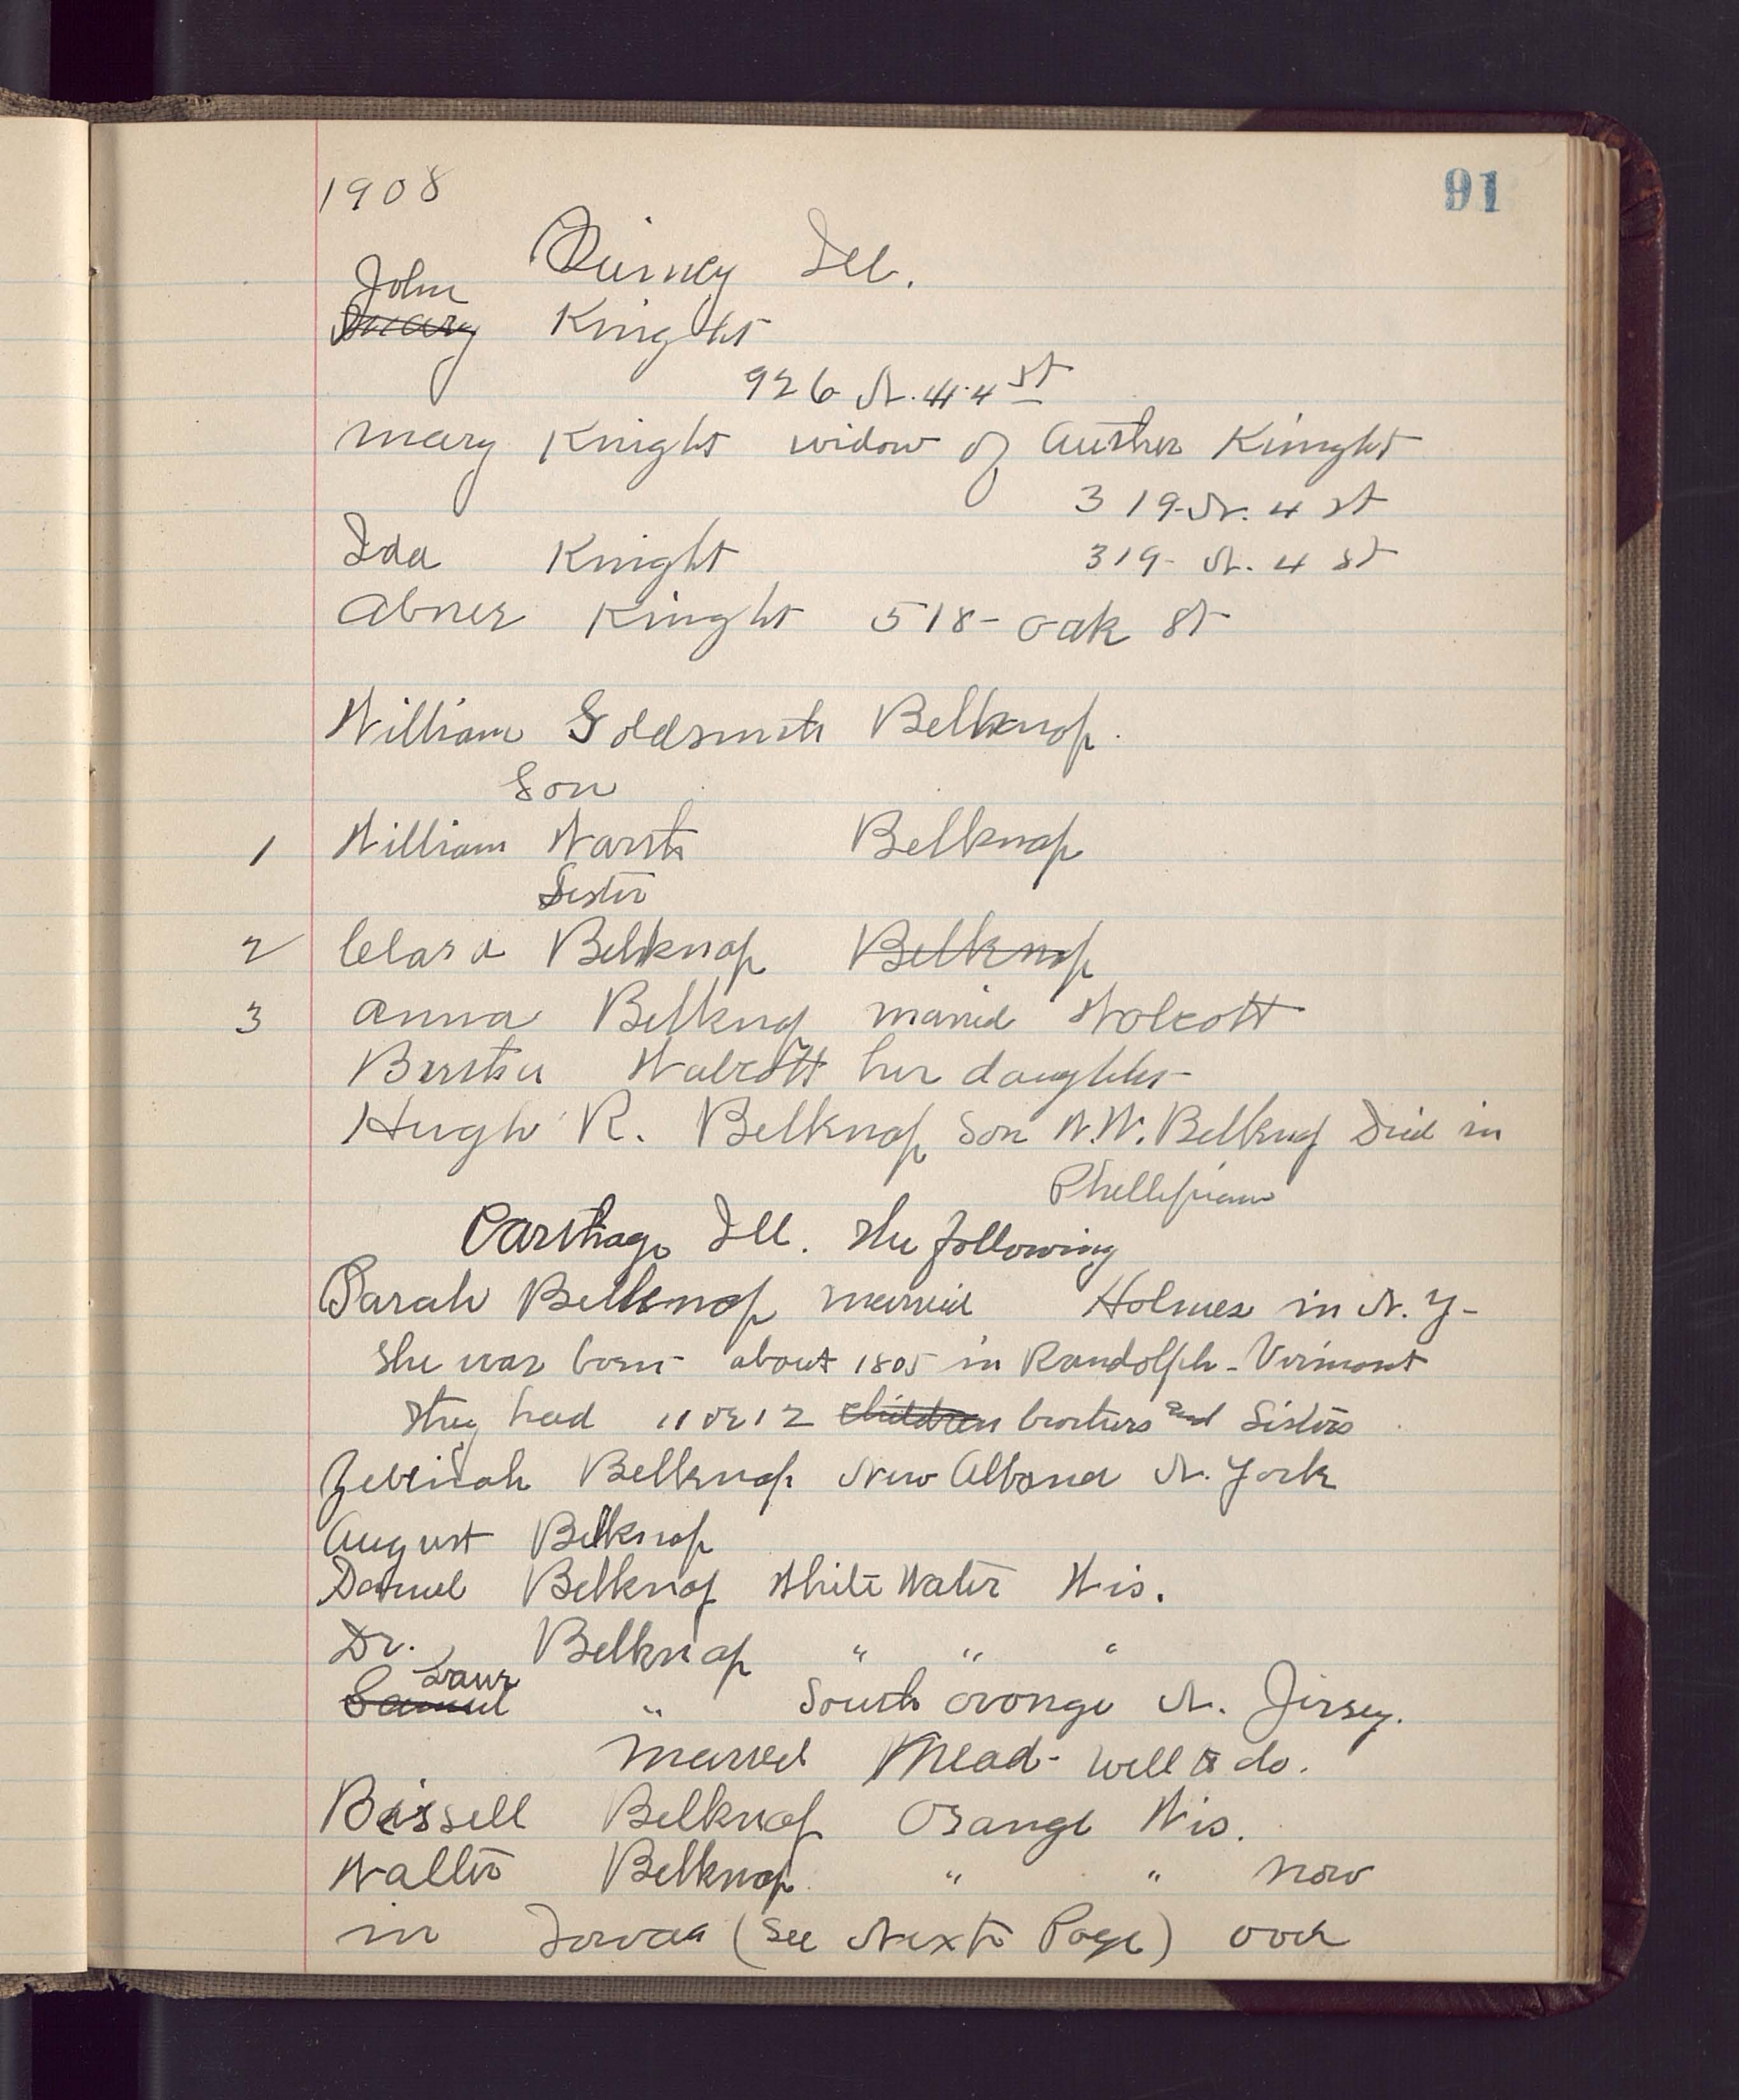 1908
91
Quincy Ill.
John
Mary Knight
926 N. 4 st
Mary Knight widow of Auther Kinght
319- N. 4 st
Ida Knight 319- N. 4 st
Abner Kinght 518- Oak St
William Goldsmith Belknap.
Son
1 William Worth Belknap
Sister
2 Clara Belknap Belknap
3 Anna Belknap married Wolcott
Bertha Walcott her daughter
Hugh R. Belknap Son W.W. Belknap Died in
Carthage Ill. the following
Sarah Belknap married Holmes in N. Y-
She was born about 1805 in Randolph- Virmont
they had 11 or 12 children brothers and Sisters
Belknap New Albana N. York
August Belknap
Daniel Belknap White Water Wis.
Dr. Belknap " " "
Samuel " South Orange N. Jirsey.
Married Mead- well to do.
Bissell Belknap Orange Wis.
Walter Belknap " " now
in Iowaa (See Next Page) over